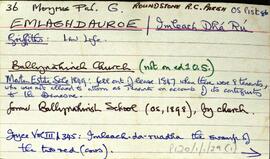 36 Moyrus Par. G. ROUNDSTONE R.C. PARISH OS list
EMLAGHDAUROE / Imleach Dhá Rú
Griffiths: Law Life.
Ballynahinch Church (not on ed 1 OS)
Martin Estate Sale 1849: fell out of lease 1847 when there were 8 tenants,
who was not allowed to return as tenants on account of its contiguity
to the Demesne.
former Ballynahinch School (OS, 1898), by church.
Joyce Vol III, 345: Imleach-dá-ruadha the swamp of
the two red (cows).
P120/1/1/29 (1)